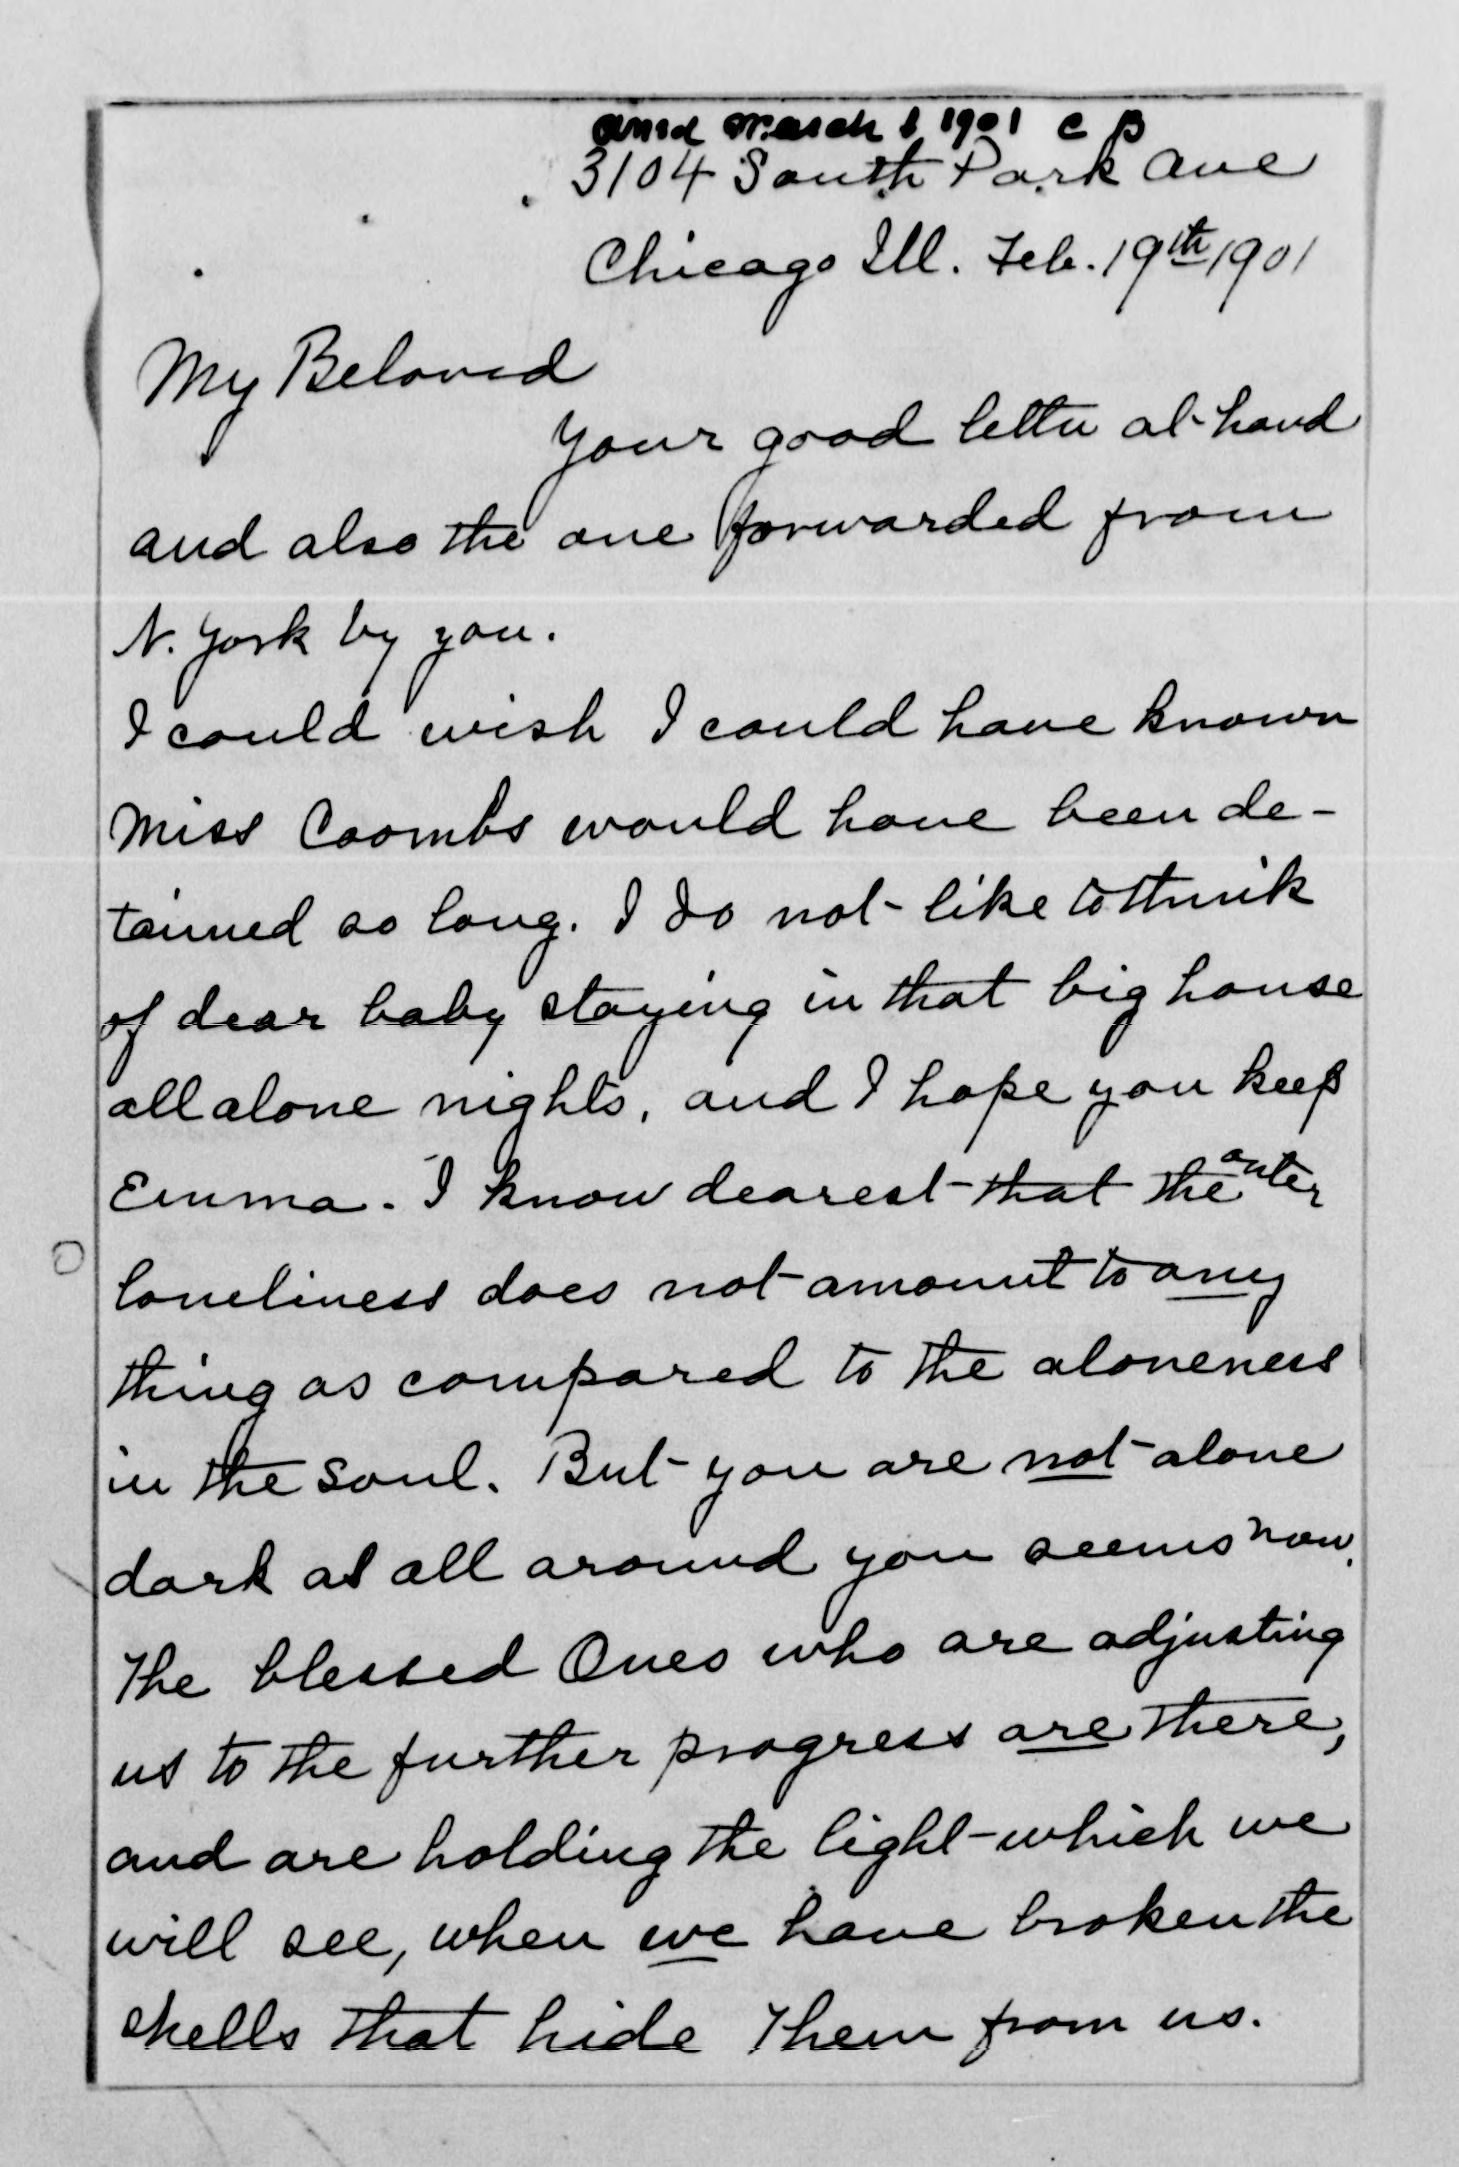 Ansd March 1901 C B
3104 South Park Ave
Chicago Ill. Feb. 19th 1901
My Beloved
Your good letter at hand
and also the one forwarded from
N. York by you.
I could wish I could have known
Miss Coombs would have been de-
tained so long. I do not like to think
of dear baby staying in that big house
all alone nights, and I hope you keep
Emma. I know dearest that the outer
loneliness does not amount to any
thing as compared to the aloneness
in the soul. But you are not alone
dark as all around you seems now.
The blessed Ones who are adjusting
us to the further progress are there,
and are holding the light which we
will see, when we have broken the
shells that hide Them from us.